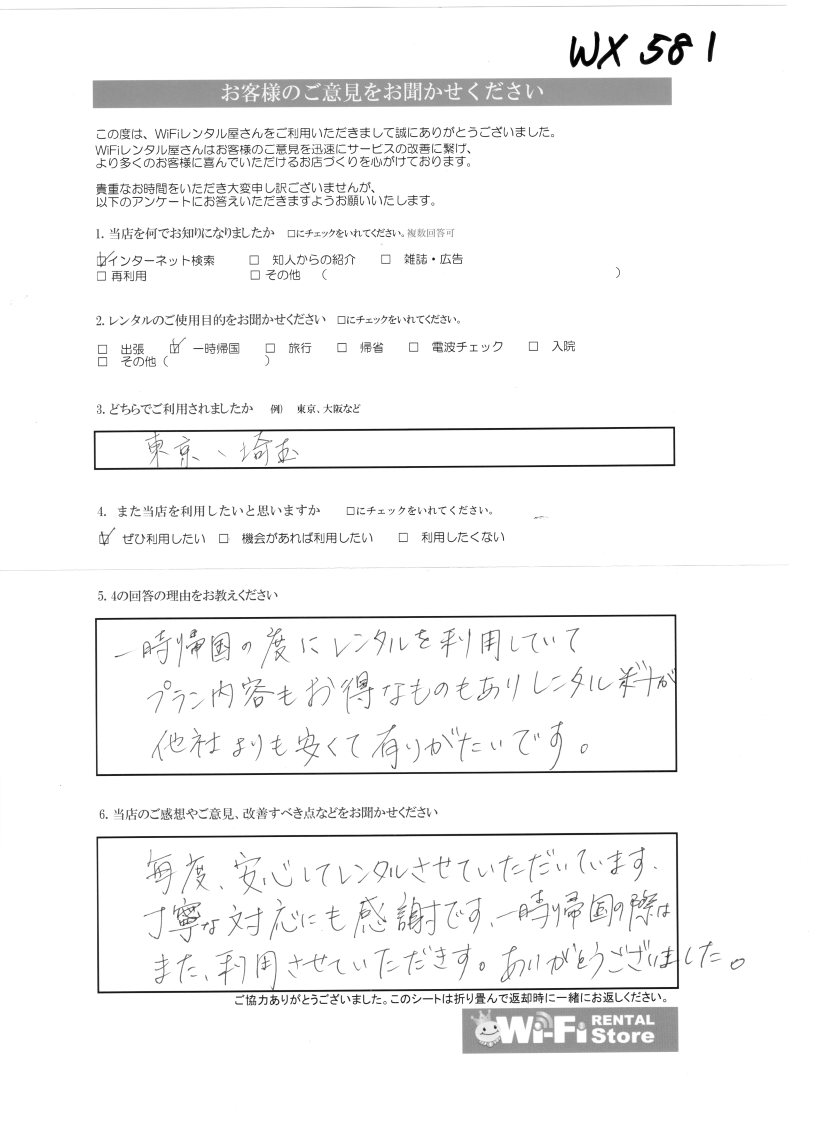 WX 581
お客様のご意見をお聞かせください
この度は、WiFiレンタル屋さんをご利用いただきまして誠にありがとうございました。
WiFiレンタル屋さんはお客様のご意見を迅速にサービスの改善に繋げ、
より多くのお客様に喜んでいただけるお店づくりを心がけております。
貴重なお時間をいただき大変申し訳ございませんが、
以下のアンケートにお答えいただきますようお願いいたします。
1. 当店を何でお知りになりましたか □にチェックをいれてください。複数回答可
☑インターネット検索 □ 知人からの紹介 □ 雑誌・広告
□ 再利用 □ その他 ( )
2. レンタルのご使用目的をお聞かせください □にチェックをいれてください。
□ 出張 ☑ 一時帰国 □ 旅行 □ 帰省 □ 電波チェック □ 入院
□ その他 ( )
3. どちらでご利用されましたか 例) 東京、大阪など
東京、埼玉
4. また当店を利用したいと思いますか □にチェックをいれてください。
☑ ぜひ利用したい □ 機会があれば利用したい □ 利用したくない
5. 4の回答の理由をお教えください
一時帰国の度にレンタルを利用していて
プラン内容もお得なものもありレンタル料が
他社よりも安くて有りがたいです。
6. 当店のご感想やご意見、改善すべき点などをお聞かせください
毎度、安心してレンタルさせていただいています、
丁寧な対応にも感謝です、一時帰国の際は
また、利用させていただきす。ありがとうございました。
ご協力ありがとうございました。このシートは折り畳んで返却時に一緒にお返しください。
Wi-Fi RENTAL Store